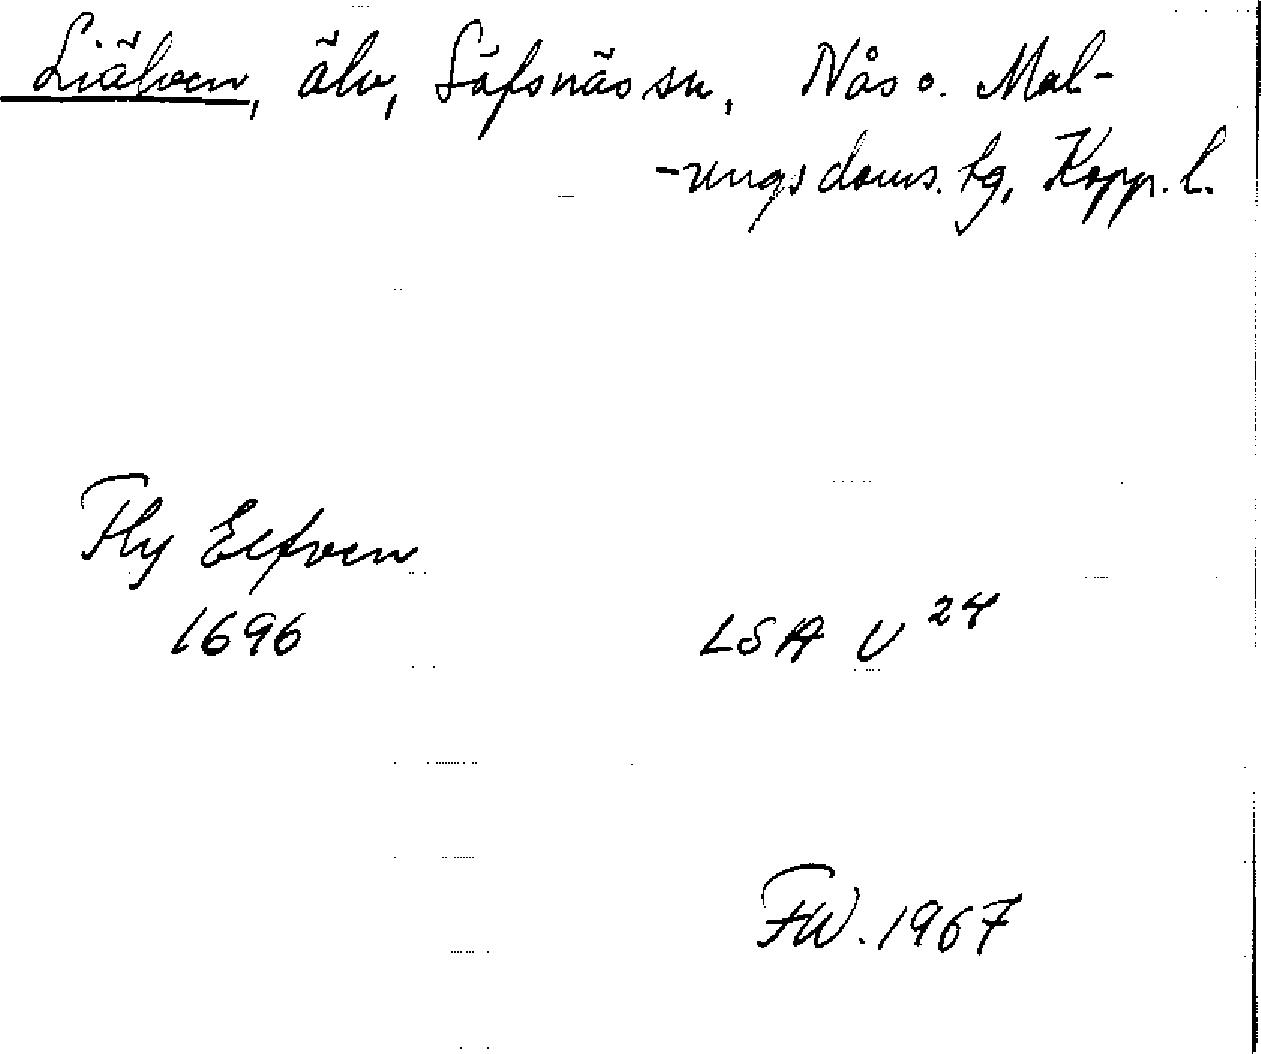 Liälven, älv, Säfsnäs sn, Nås o. Mal-
-ungs doms. tg, Kopp. l.
Fly Elfven
1696 LSA U 24
FW. 1967